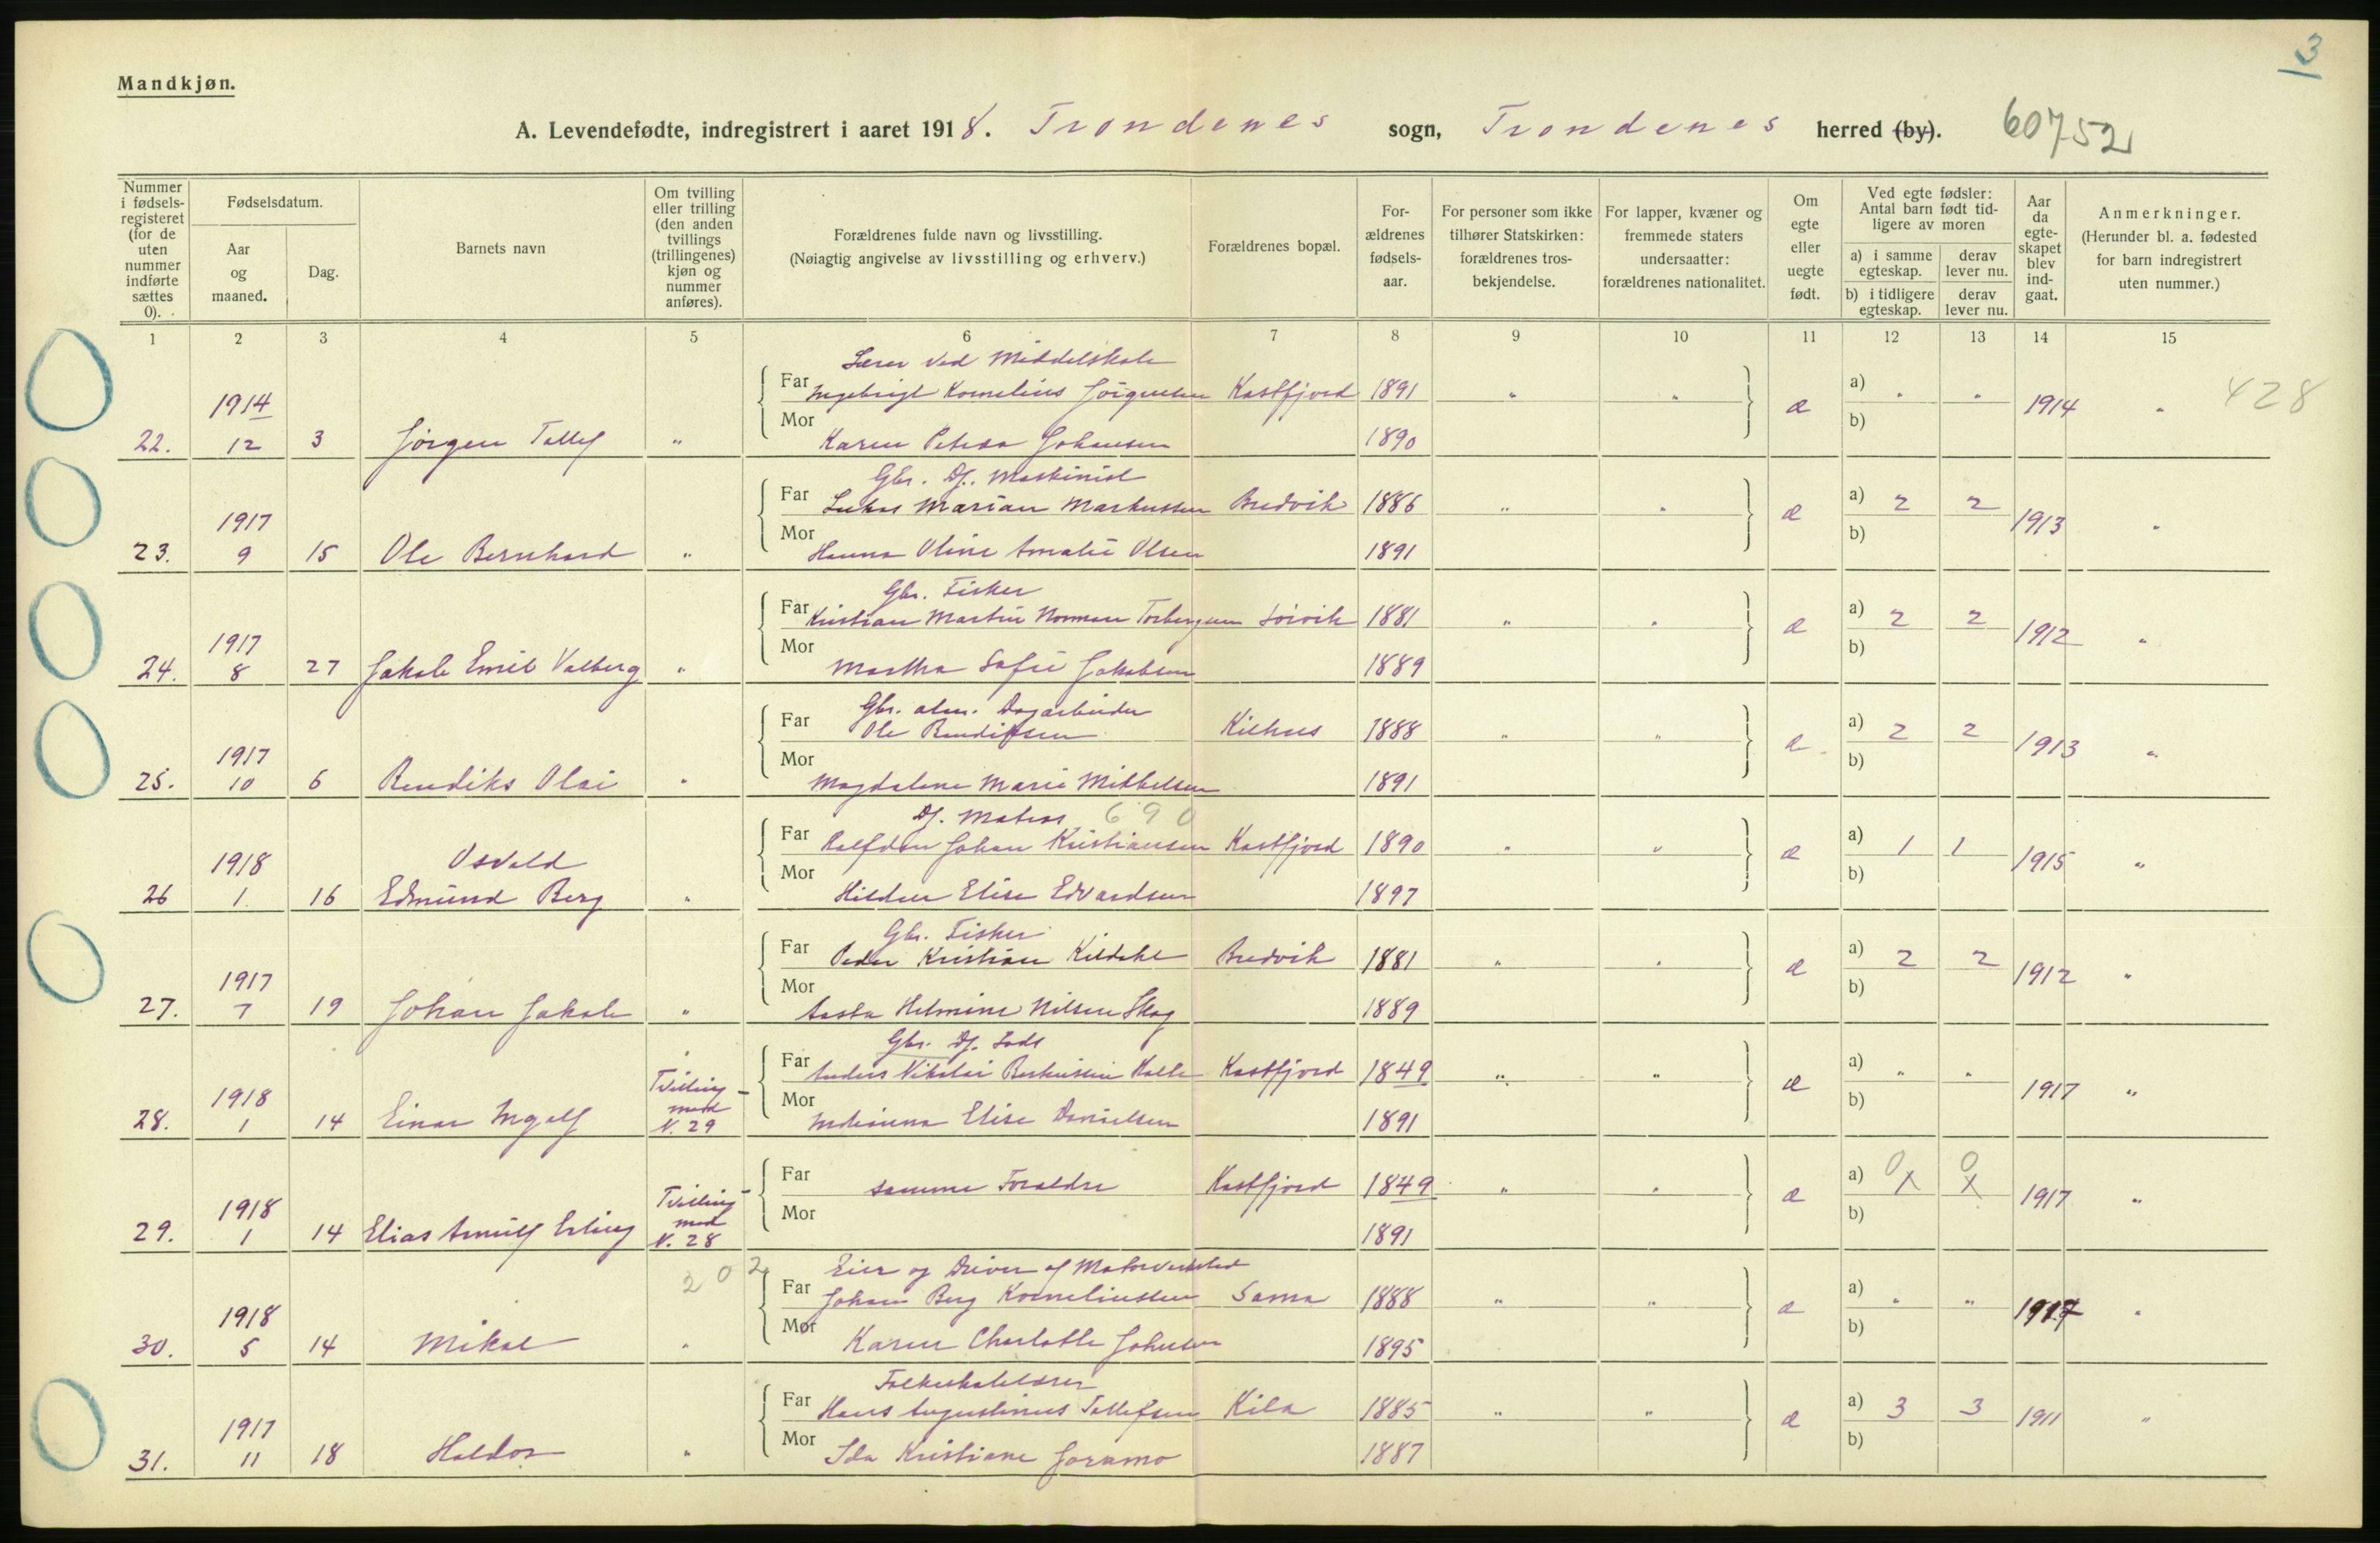 3
Mandkjøn.
A. Levendefødte, indregistrert i aaret 1918. Trondenes sogn, Trondenes herred (by). 60752
Nummer i fødsels-registeret (for de uten nummer indførte sættes 0).
Fødselsdatum.
Aar og maaned.
Dag.
Barnets navn
Om tvilling eller trilling (den anden tvillings (trillingenes) kjøn og nummer anføres).
Forældrenes fulde navn og livsstilling.
(Nøiagtig angivelse av livsstilling og erhverv.)
Forældrenes bopæl.
For-ældrenes fødsels-aar.
For personer som ikke tilhører Statskirken: forældrenes tros-bekjendelse.
For lapper, kvæner og fremmede staters undersaatter: forældrenes nationalitet.
Om egte eller uegte født.
Ved egte fødsler: Antal barn født tid-ligere av moren
a) i samme egteskap.
derav lever nu.
b) i tidligere egteskap.
derav lever nu.
Aar da egte-skapet blev ind-gaat.
Anmerkninger.
(Herunder bl. a. fødested for barn indregistrert uten nummer.)
1 2 3 4 5 6 7 8 9 10 11 12 13 14 15
Lærer ved Middelskole
1914 Far Ingebrigt Kornelius Jörgensen Kastfjord 1891 " " æ a) " " 1914 " 428
22. 12 3 Jörgen Tollef " Mor Karen Petrea Johansen 1890 b)
Gbr. Df. Maskinist
1917 Far Lukas Marian Markussen Bredvik 1886 " " æ a) 2 2 1913 "
23. 9 15 Ole Bernhard " Mor Hanna Oline Amalie Olsen 1891 b)
Gbr. Fisker
1917 Far Kristian Martin Norman Torbergsen Sörvik 1881 " " æ a) 2 2 1912 "
24. 8 27 Jakob Emil Valberg " Mor Martha Sofie Jakobsen 1889 b)
Gbr. alm. Dagarbeider
1917 Far Ole Bendiksen Kilhus 1888 " " æ a) 2 2 1913 "
25. 10 6 Bendiks Olai " Mor Magdalene Marie Mikkelsen 1891 b)
Df. Matros 690
1918 Osvald Far Halfdan Johan Kristiansen Kastfjord 1890 " " æ a) 1 1 1915 "
26 1. 16 Edmund Berg " Mor Elise Edvardsen 1897 b)
Gbr. Fisker
1917 Far Peder Kristian Kildahl Bredvik 1881 " " æ a) 2 2 1912 "
27. 7 19 Johan Jakob " Mor Aasta Helmine Nilsen Skog 1889 b)
Gbr. Df. Lods
1918 Tvilling Far Anders Nikolai Kastfjord 1849 " " æ a) " " 1917 "
28. 1 14 Einar Ingolf med N. 29 Mor Elise Danielsen 1891 b)
1918 Tvilling Far samme Forældre Kastfjord 1849 " " æ a) 0 x 0 x 1917 "
29. 1 14 Elias Arnulf Erling med N. 28 Mor 1891 b)
202 Eier og Driver af Motorverksted
1918 Far Johan Berg Korneliussen Sama 1888 " " æ a) " " 1917 "
30. 5 14 Mikal " Mor Karen Charlotte Johnsen 1895 b)
Folkeskolelærer
1917 Far Hans Augustinus Tollefsen Kila 1885 " " æ a) 3 3 1911 "
31. 11 18 Haldor " Mor Ida Kristiane Joramo 1887 b)